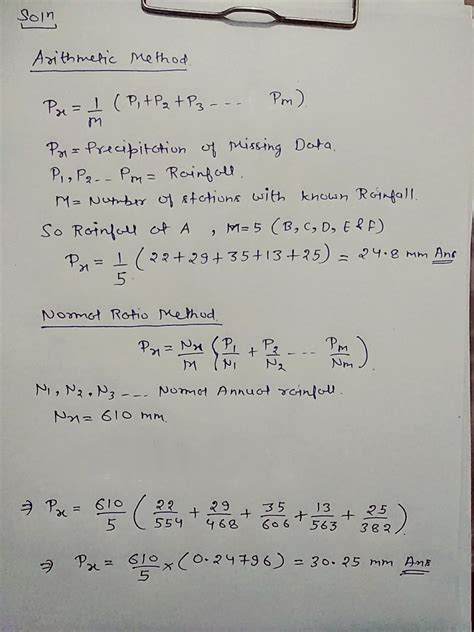 Soln
Arithmetic Method
Px = 1/M (P1+P2+P3 --- Pm)
Px = Precipitation of Missing Data.
P1, P2 -- Pm = Rainfall.
M = Number of stations with known Rainfall.
So Rainfall at A , M=5 (B, C, D, E & F)
Px = 1/5 (22+29+35+13+25) = 24.8 mm Ans
Normal Ratio Method.
Px = Nx/M {P1/N1 + P2/N2 --- Pm/Nm)
N1, N2, N3 --- Normal Annual rainfall.
Nx = 610 mm.
⇒ Px = 610/5 (22/554 + 29/468 + 35/606 + 13/563 + 25/382)
⇒ Px = 610/5 × (0.24796) = 30.25 mm Ans